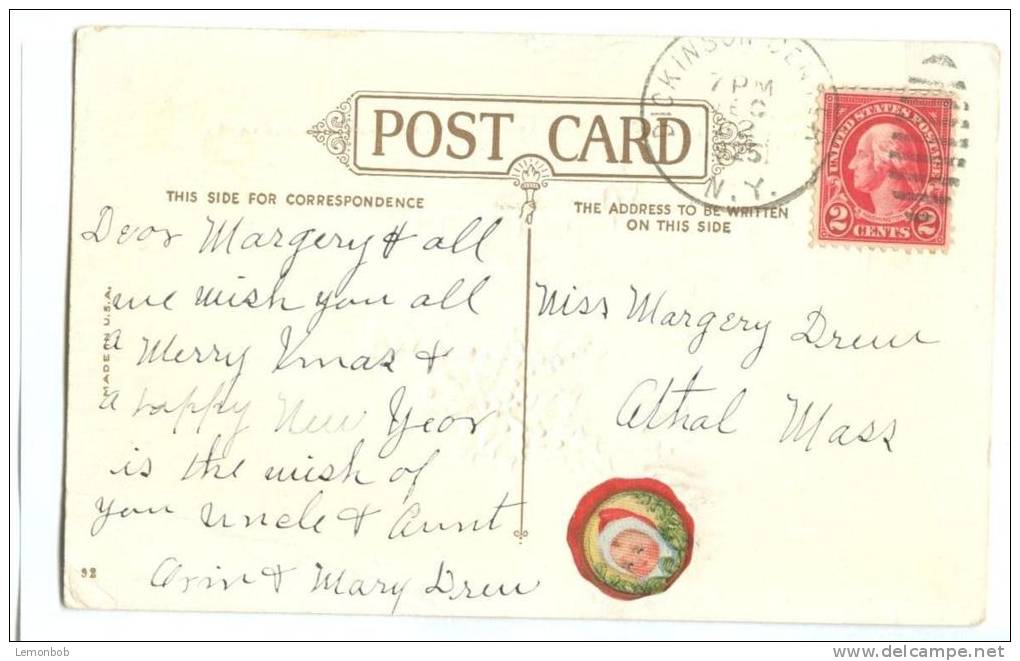 POST CARD
THIS SIDE FOR CORRESPONDENCE
THE ADDRESS TO BE WRITTEN
ON THIS SIDE
7 PM
N.Y.
UNITED STATES POSTAGE
2 CENTS 2
Dear Margery & all
we wish you all
a Merry Xmas &
a happy New Year
is the wish of
you Uncle & Aunt
Orin & Mary Drew
MADE IN U.S.A.
92
Miss Margery Drew
Athol Mass
Lemonbob
www.delcampe.net